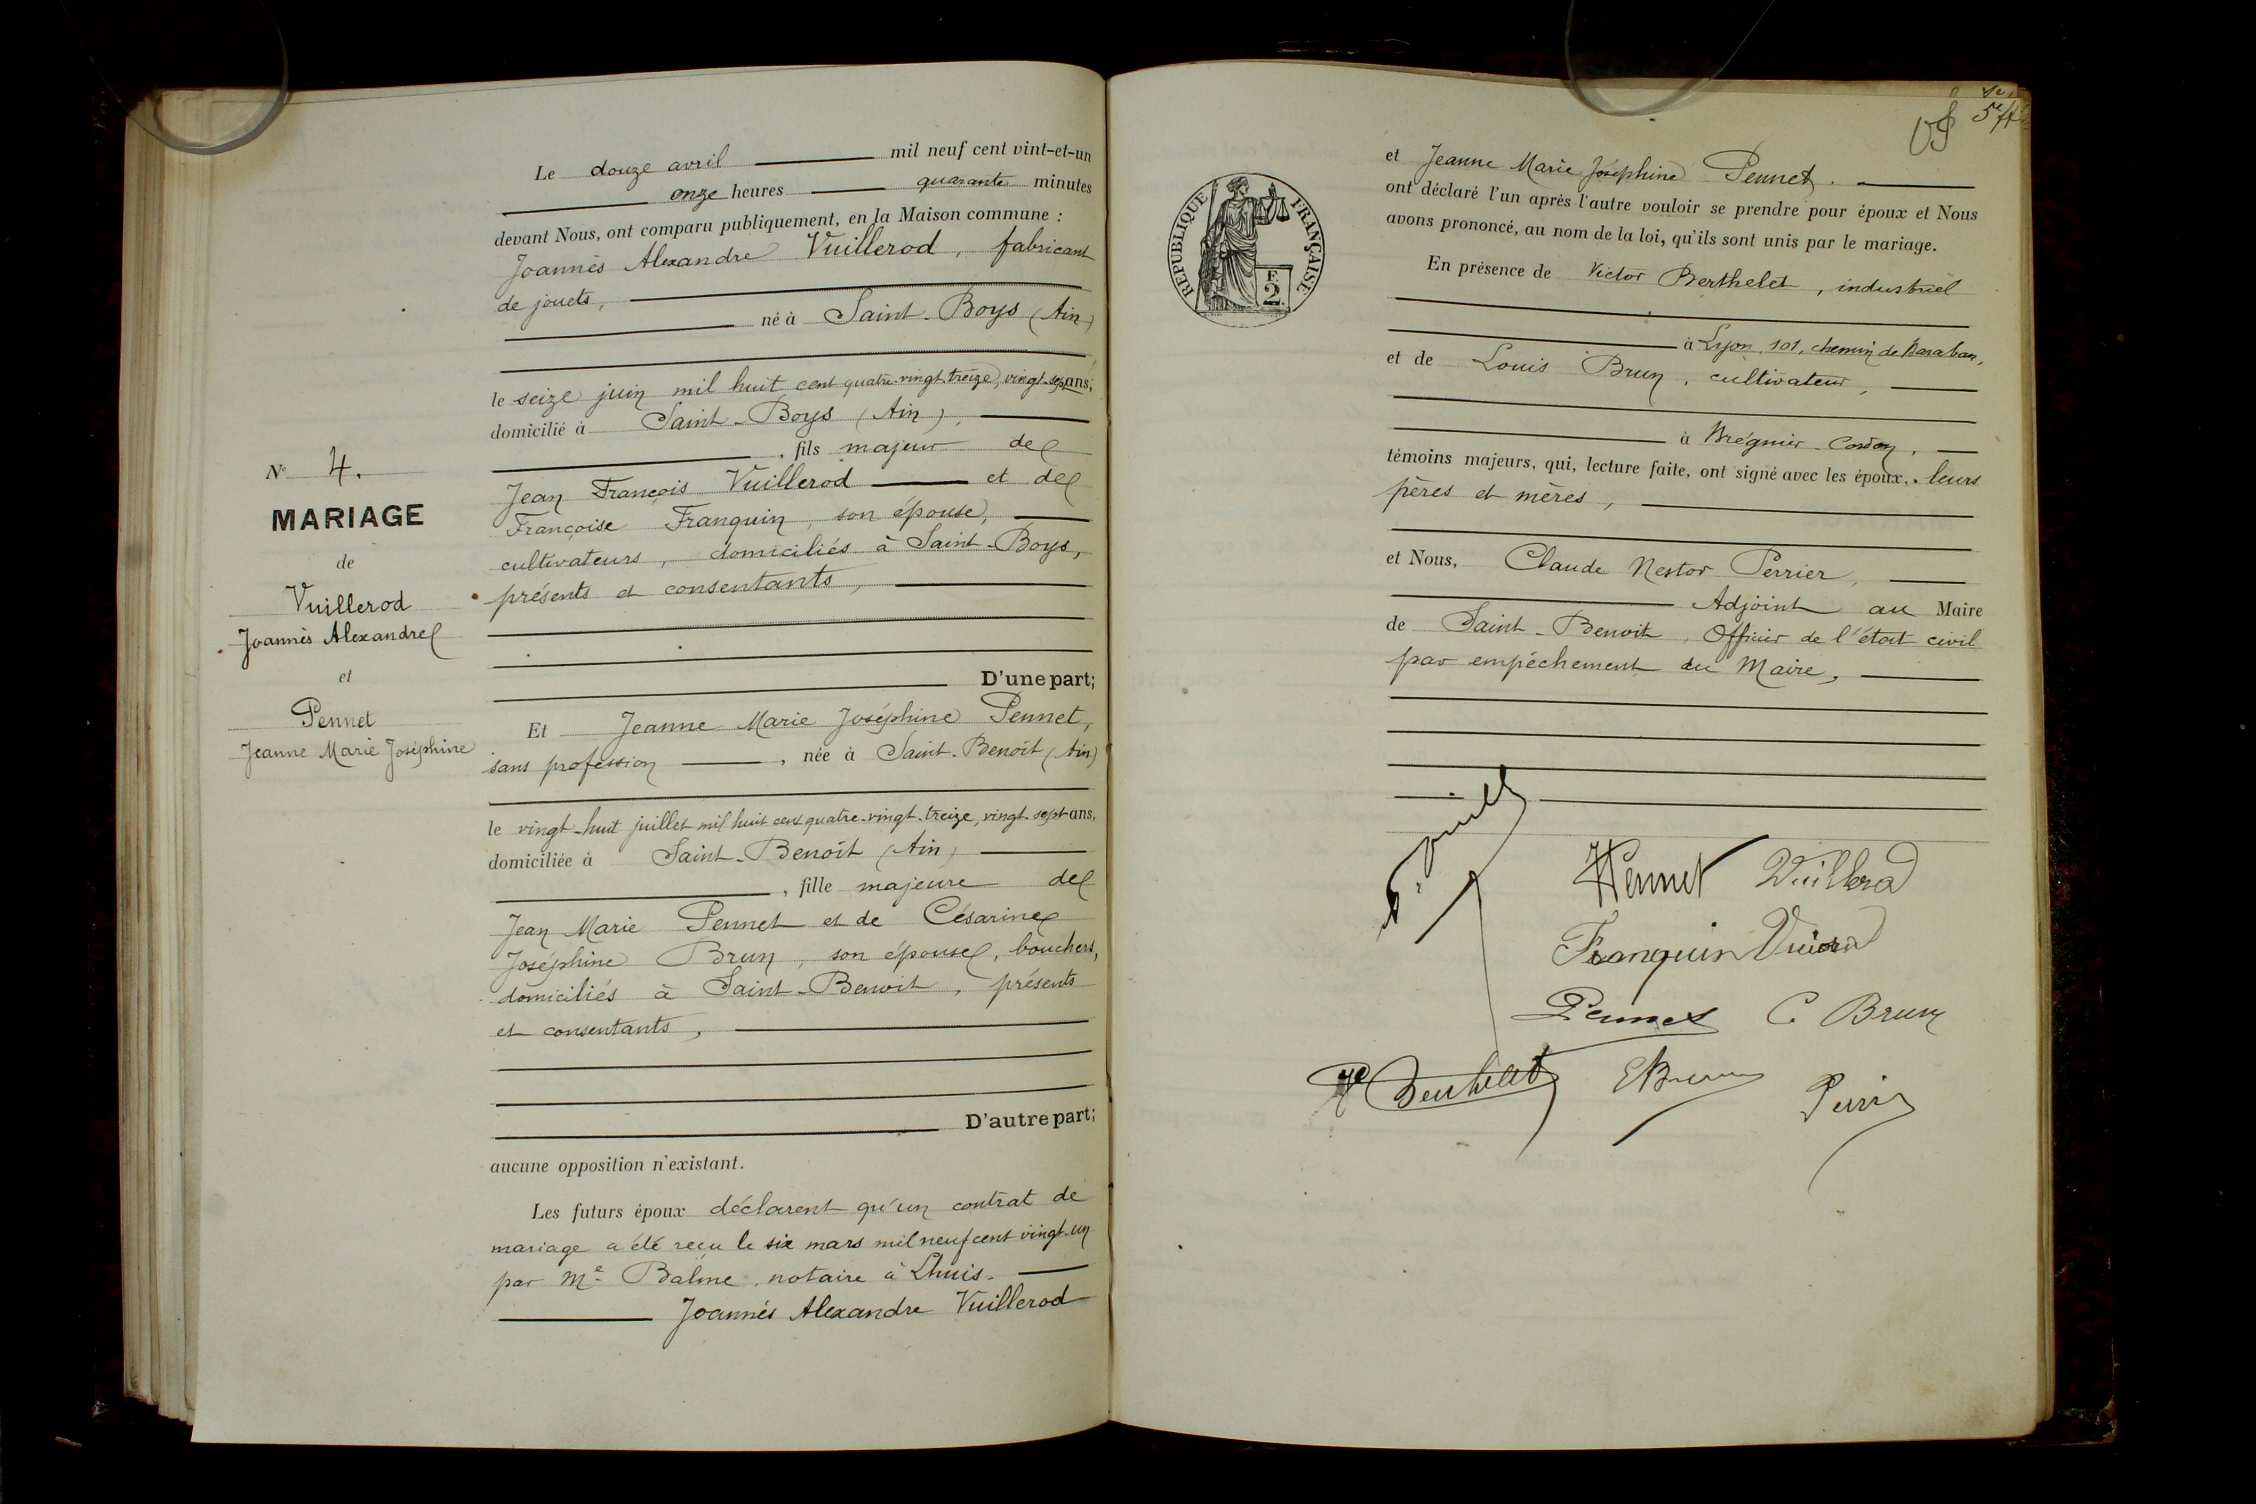 Le douze avril mil neuf cent vint-et-un
onze heures quarante minutes
devant Nous, ont comparu publiquement, en la Maison commune :
Joannès Alexandre Vuillerod, fabricant
de jouets,
né à Saint-Boys (Ain)
le seize juin mil huit cent quatre-vingt-treize, vingt-sept ans,
domicilié à Saint-Boys (Ain),
, fils majeur de
Jean François Vuillerod et de
Françoise Franquin, son épouse,
cultivateurs, domiciliés à Saint-Boys,
présents et consentants,
D'une part;
Et Jeanne Marie Joséphine Pennet,
sans profession, née à Saint-Benoît (Ain)
le vingt-huit juillet mil huit cent quatre-vingt-treize, vingt-sept ans,
domiciliée à Saint-Benoît (Ain)
, fille majeure de
Jean Marie Pennet et de Césarine
Joséphine Brun, son épouse, bouchers,
domiciliés à Saint-Benoit, présents
et consentants,
D'autre part;
aucune opposition n'existant.
Les futurs époux déclarent qu'un contrat de
mariage a été reçu le six mars mil neuf cent vingt-un
par Me Balme, notaire à Lhuis.
Joannès Alexandre Vuillerod
No 4.
MARIAGE
de
Vuillerod
Joannès Alexandre
et
Pennet
Jeanne Marie Joséphine
RÉPUBLIQUE FRANÇAISE
F.
2
et Jeanne Marie Joséphine Pennet.
ont déclaré l'un après l'autre vouloir se prendre pour époux et Nous
avons prononcé, au nom de la loi, qu'ils sont unis par le mariage.
En présence de Victor Berthelet, industriel
à Lyon, 101, chemin de Baraban,
et de Louis Brun, cultivateur,
à Brégnier-Cordon,
témoins majeurs, qui, lecture faite, ont signé avec les époux, leurs
pères et mères,
et Nous, Claude Nestor Perrier,
Adjoint au Maire
de Saint-Benoit, Officier de l'état civil
par empêchement du Maire,
Pennet Vuillerod
Franquin
Pennet C Brun
Berthelet Brun
Perrier